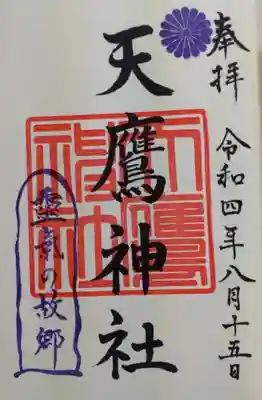 奉拝
令和四年八月十五日
天鷹神社
天鷹神社
霊気の故郷